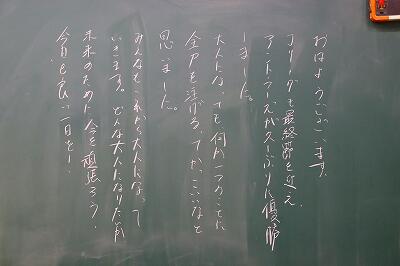 おはようございます。
Jリーグも最終節を迎え、
アントラーズが久しぶりに優勝
しました。
大人になっても何か一つのことに
全力を注げるってかっこいいなと
思いました。
みんなもこれから大人になって
いきます。どんな大人になりたいか
未来のために今を頑張ろう。
今日も良い一日を！